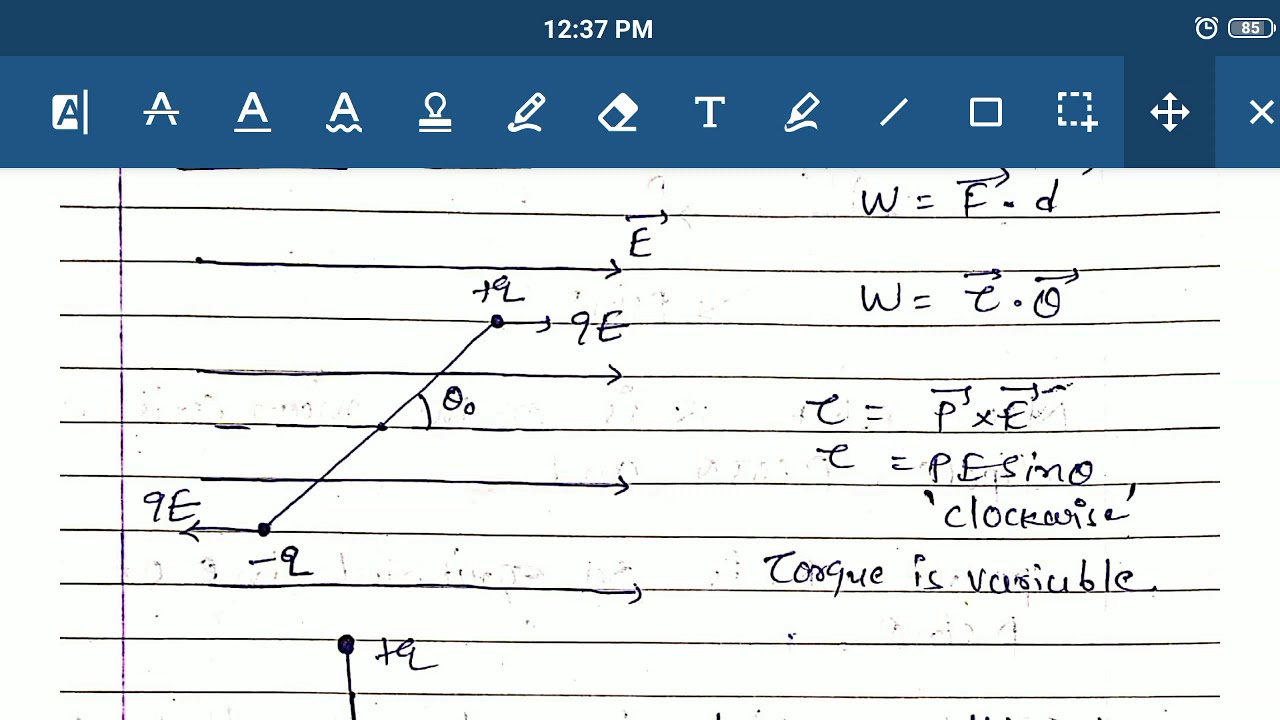 12:37 PM
85
W = F⃗ · d
E⃗
+q
qE
W = τ⃗ · θ⃗
θ₀
τ = P⃗ × E⃗
τ = PE sinθ
'clockwise'
qE
-q
Torque is variable
+q